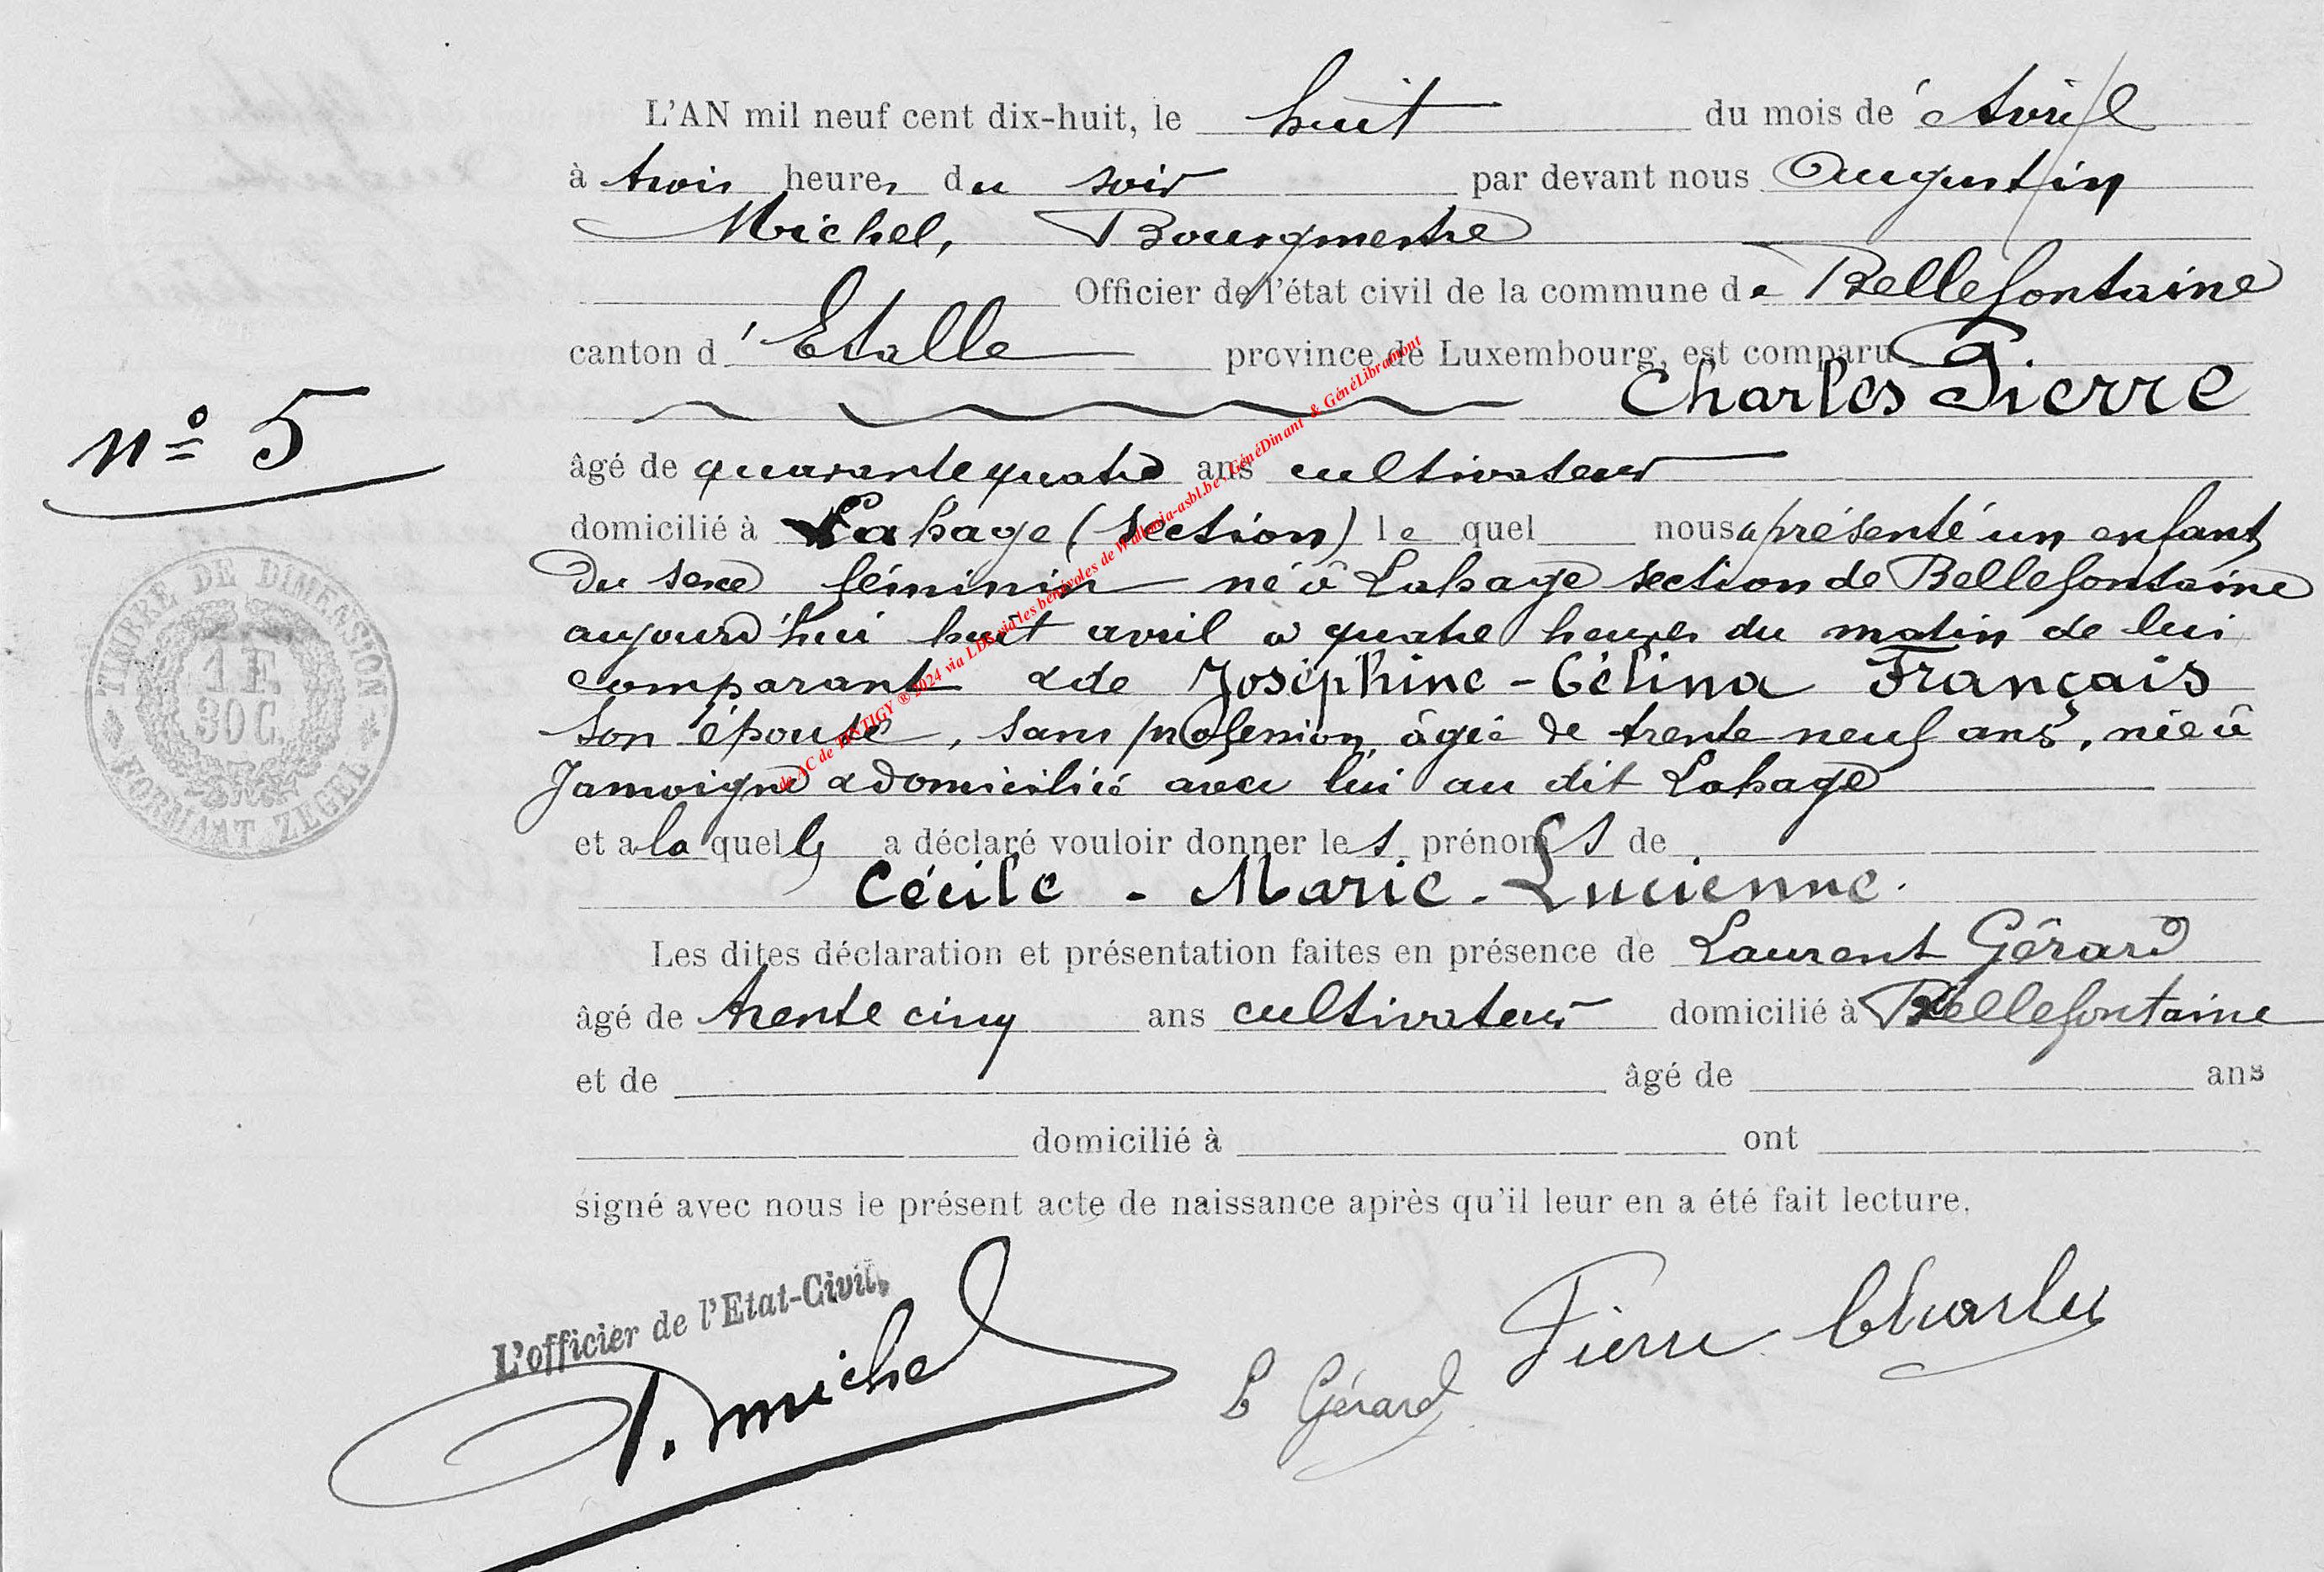 L'AN mil neuf cent dix-huit, le huit du mois de Avril
à trois heures du soir par devant nous Augustin
Michel, Bourgmestre
Officier de l'état civil de la commune de Bellefontaine
canton d'Etalle province de Luxembourg, est comparu
Charles Pierre
n° 5
âgé de quarante quatre ans cultivateur
domicilié à Lahage (section) le quel nous a présenté un enfant
du sexe féminin né à Lahage section de Bellefontaine
aujourd'hui huit avril à quatre heures du matin de lui
comparant & de Joséphine - Célina Français
son épouse, sans profession, âgée de trente neuf ans, née à
Jamoigne & domiciliée avec lui au dit Lahage
et a la quelle a déclaré vouloir donner les prénoms de
Cécile - Marie - Lucienne.
Les dites déclaration et présentation faites en présence de Laurent Gérard
âgé de trente cinq ans cultivateur domicilié à Bellefontaine
et de âgé de ans
domicilié à ont
signé avec nous le présent acte de naissance après qu'il leur en a été fait lecture.
L'officier de l'Etat-Civil,
A. Michel
L Gérard
Pierre Charles
TIMBRE DE DIMENSION
1 F.
30 C.
FORMAAT ZEGEL
de AC de TINTIGY ® 2024 via LDS via les bénévoles de Wallonia-asbl.be - GénéDinant & GénéLibramont